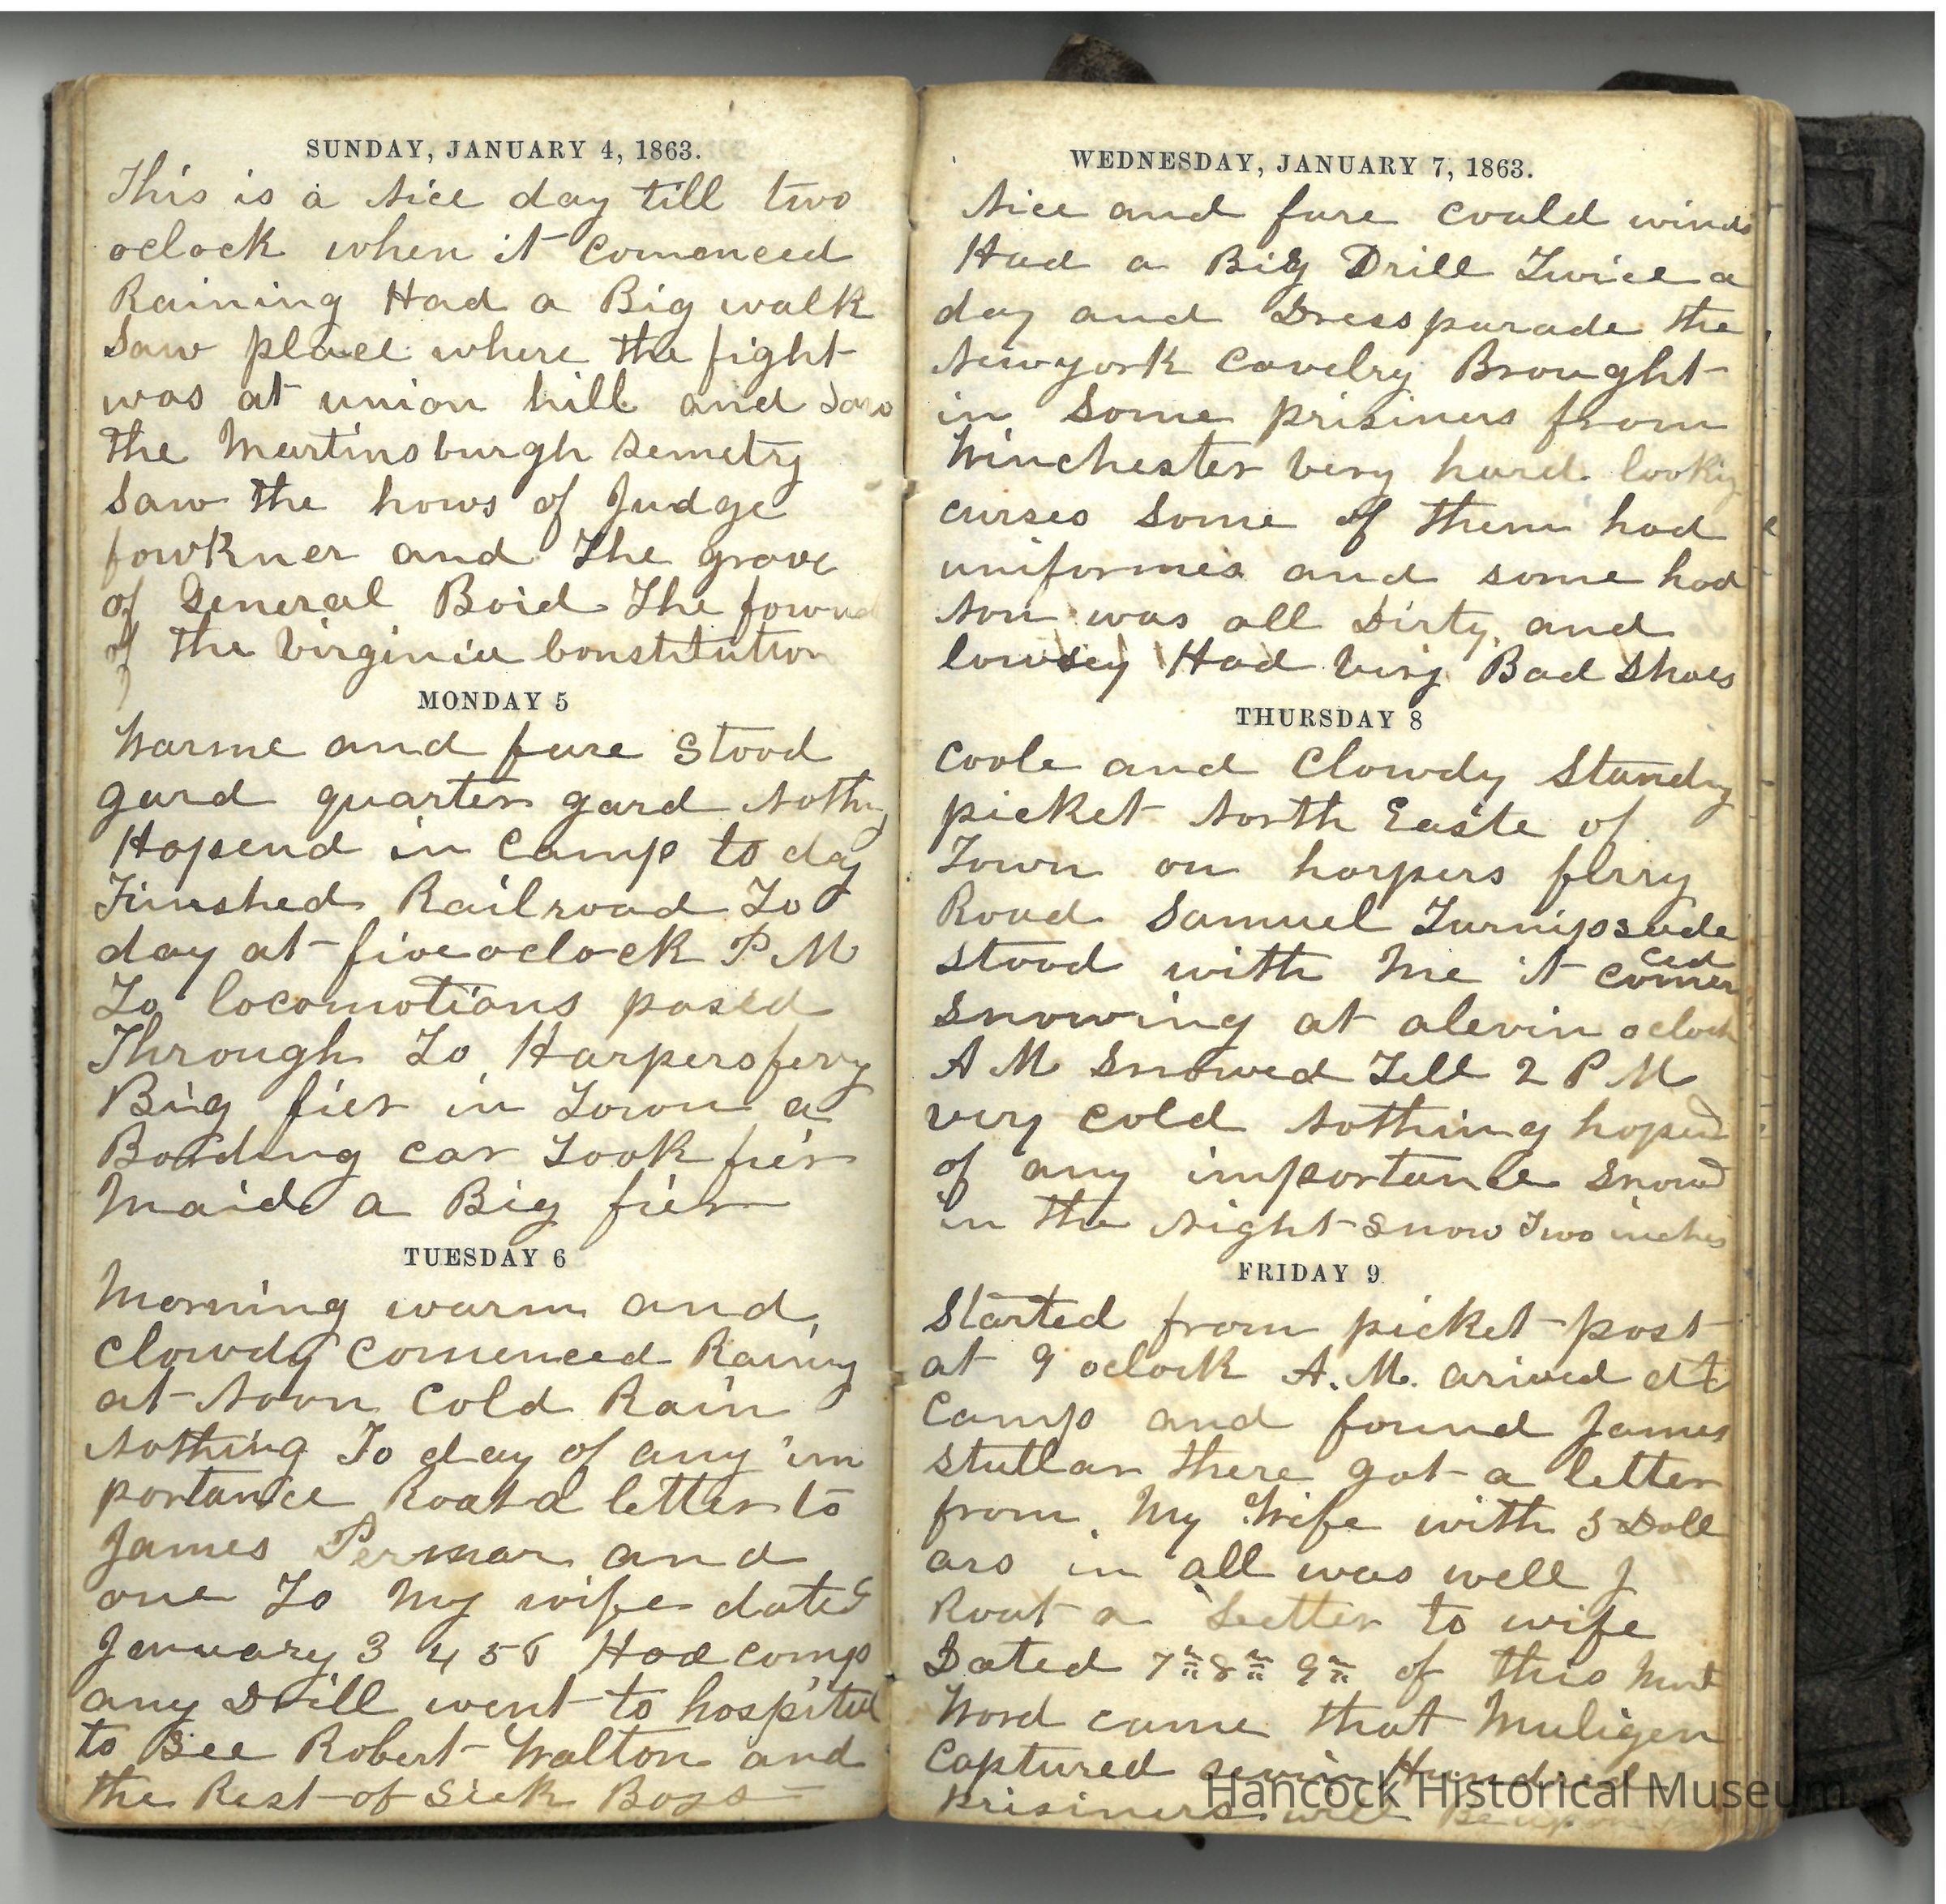 SUNDAY, JANUARY 4, 1863.
This is a nice day till two
oclock when it comenced
Raining Had a Big walk
Saw place where the fight
was at union hill and Saw
the Martinsburgh Semetry
Saw the hows of Judge
fowkner and The grave
of General Boid The
of the Virginia Constitution
MONDAY 5
Warme and fare Stood
gard quarter gard Nothing
Hapend in Camp to day
Finshed Railroad To
day at five oclock P M
To locomotians pased
Through To Harpersferry
Big fier in Town a
Boarding car Took fier
Maid a Big fier
TUESDAY 6
Morning warm and
Clowdy Comenced Rainy
at Noon Cold Rain
Nothing To day of any im
portance Roat a letter to
James Permar and
one To My wife dated
January 3 4 5 6 Had comp
any Drill went to hospital
to See Robert Walton and
the Rest of Sick Boys
WEDNESDAY, JANUARY 7, 1863.
Nice and fare could winds
Had a Big Drill Twice a
day and Dressparade the
Newyork Cavelry Brought
in Some prisiners from
Winchester very hard looking
curses Some of them had
uniformes and some had
Non was all Dirty and
lowsey Had very Bad Shoes
THURSDAY 8
Coole and Clowdy Standing
picket North Easte of
Town on harpers ferry
Road Samuel Turnipseede
Stood with Me it comenced
Snowing at alevin oclock
A M Snowed Till 2 P M
very cold Nothing hopend
of any importance Snowd
in the Night Snow Two inches
FRIDAY 9
Started from picket post
at 9 oclock A.M. arived at
Camp and found James
Stutlar there got a letter
from My Wife with 5 Doll
ars in all was well J
Roat a Letter to wife
Dated 7th 8th 9th of this Mont
Word came that Muligen
Captured sevin Hundred
Prisiners will Be
Hancock Historical Museum